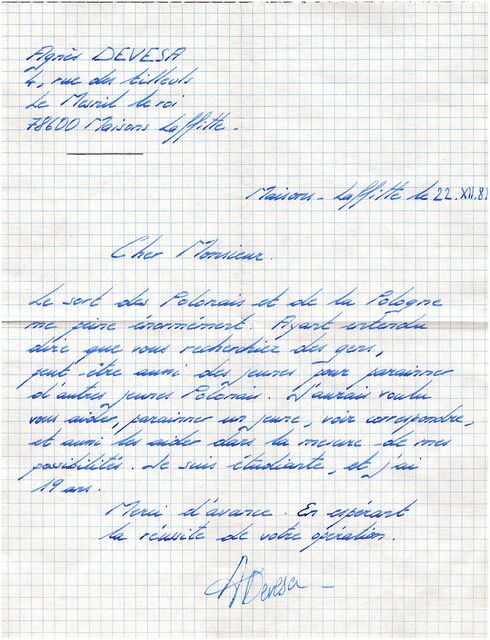 Agnès DEVESA
4, rue des tilleuls
Le Mesnil le roi
78600 Maisons Laffitte.
Maisons-Laffitte le 22.XII.81
Cher Monsieur.
Le sort des Polonais et de la Pologne
me peine énormément. Ayant entendu
dire que vous recherchiez des gens,
peut être aussi des jeunes pour parrainer
d'autres jeunes Polonais. J'aurais voulu
vous aider, parainner un jeune, voir correspondre,
et aussi les aider dans la mesure de mes
possibilités. Je suis étudiante, et j'ai
19 ans.
Merci d'avance. En espérant
la réussite de votre opération.
A Devesa